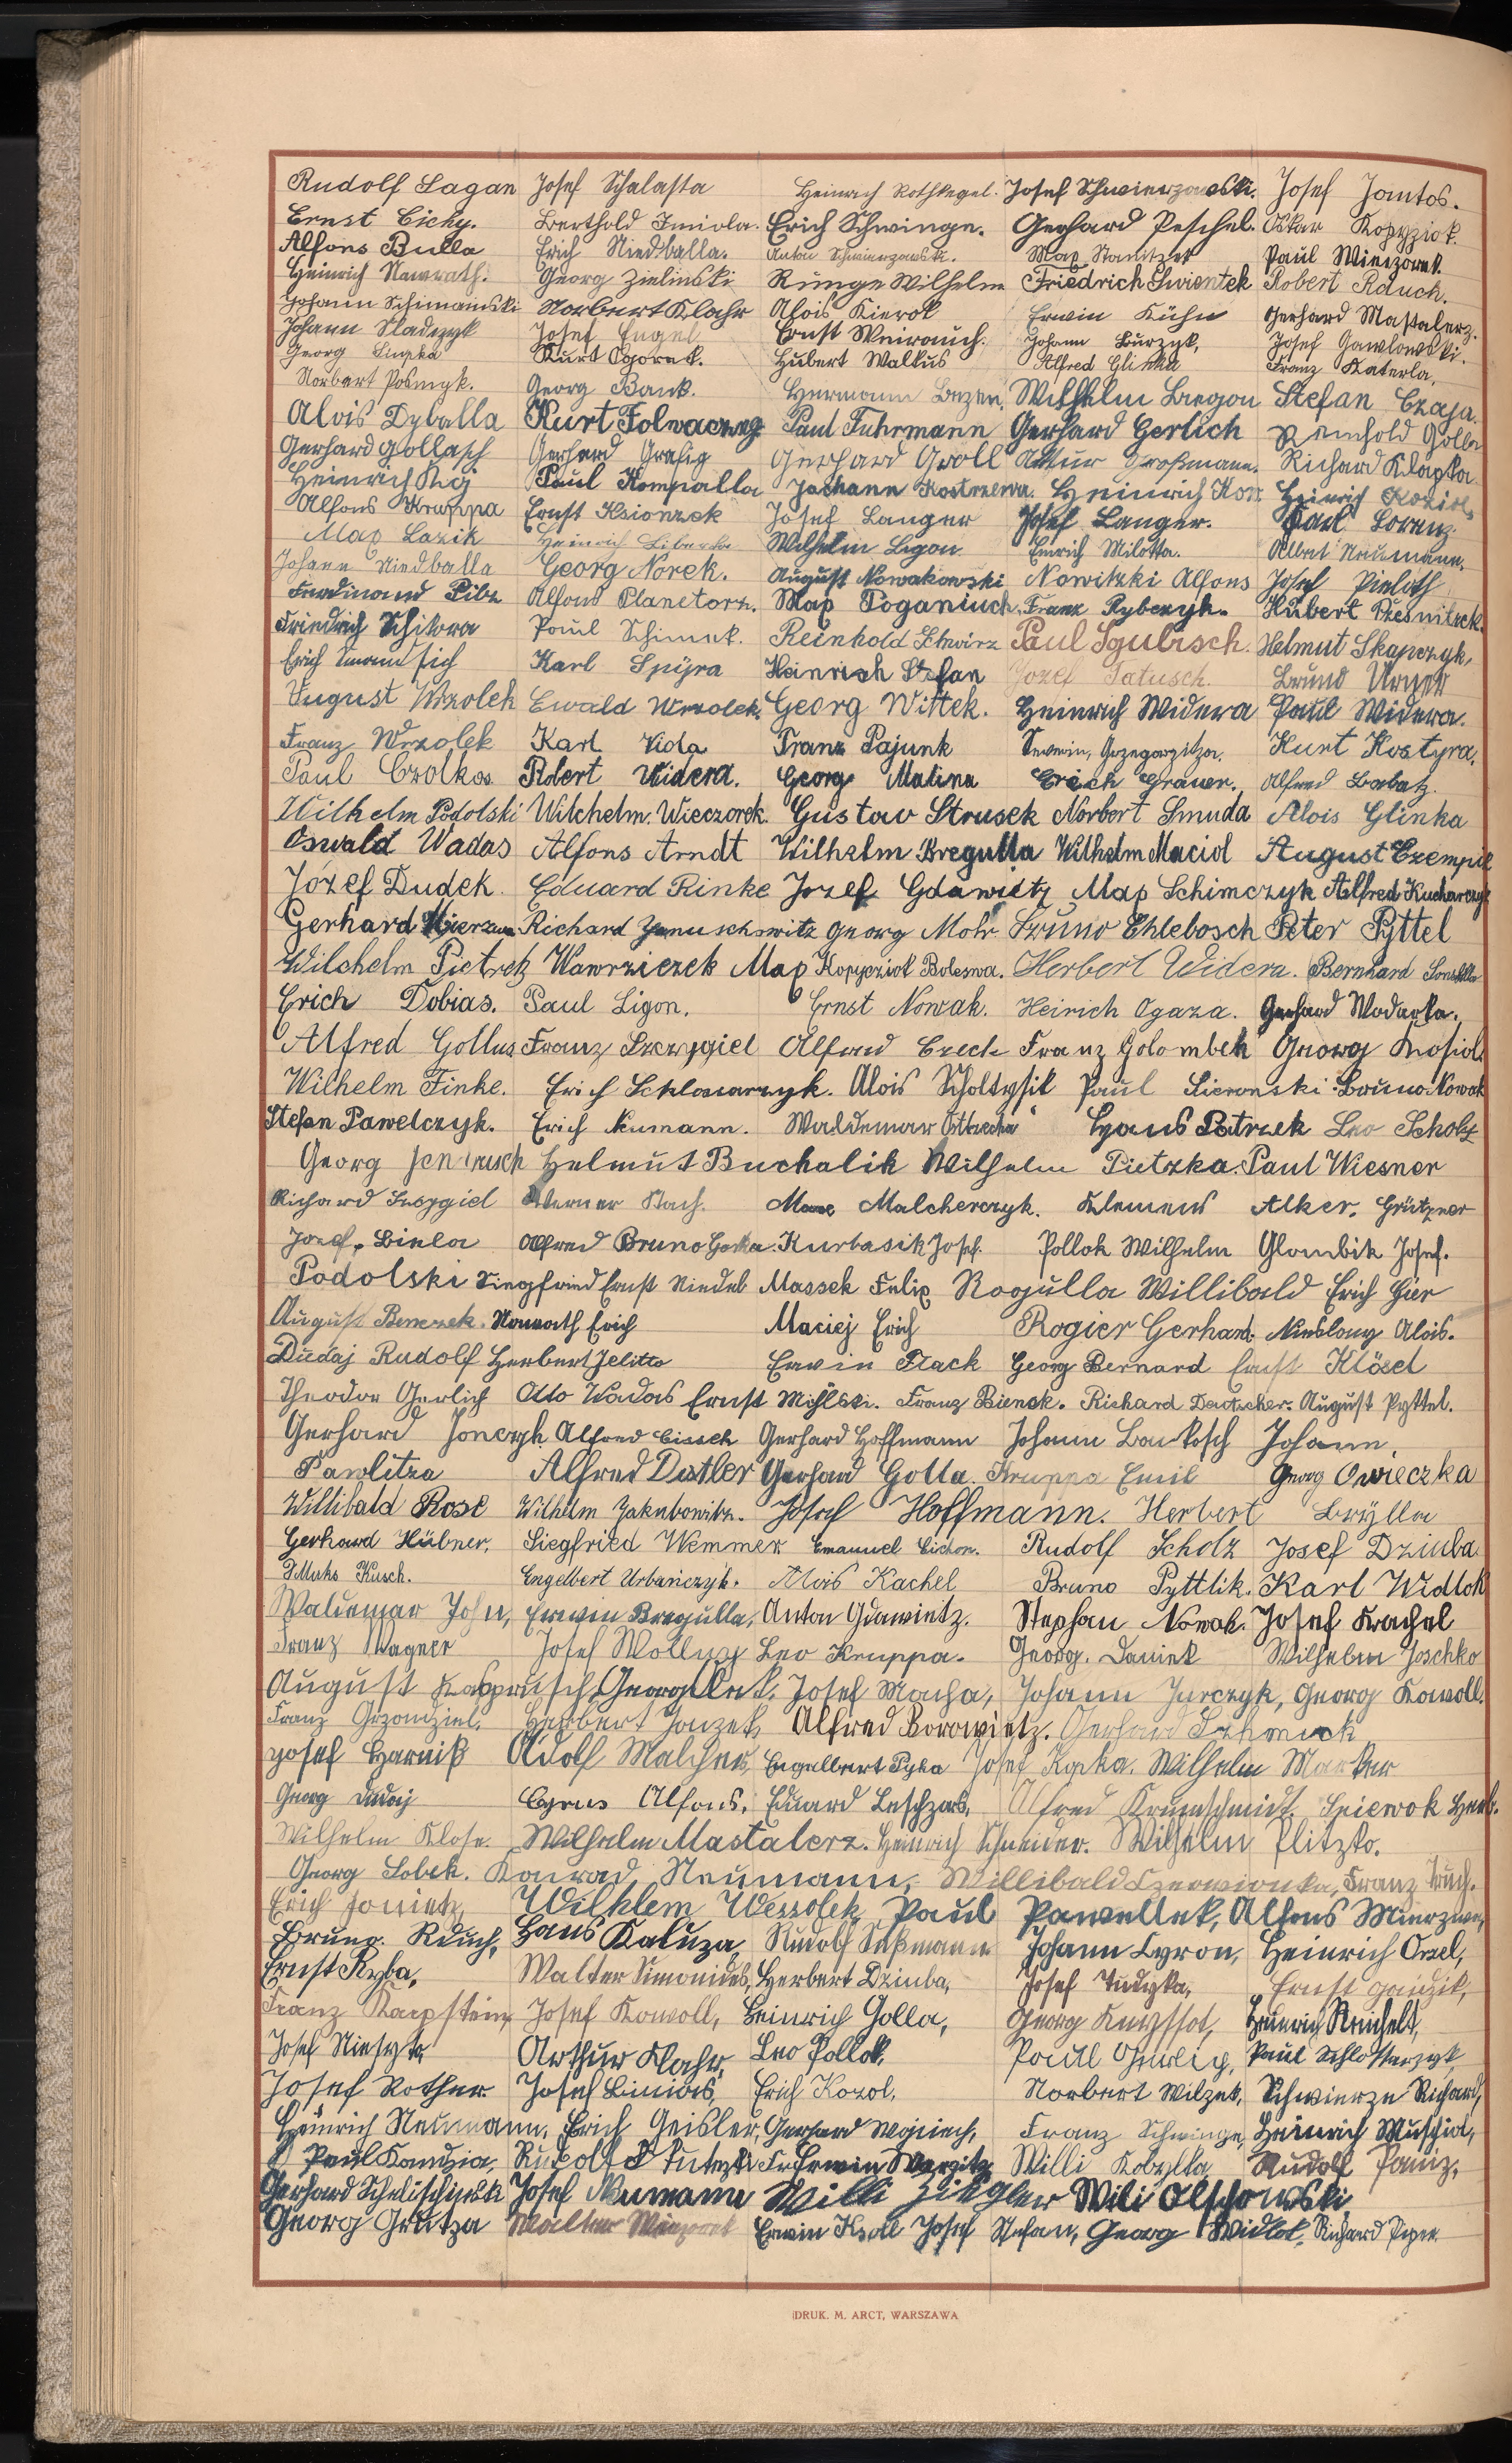 Rudolf Lagan Josef Schalasta Heinrich Rothkegel. Josef Schwierzowski. Josef Jontos.
Ernst Cichy. Berthold Imiola. Erich Schwinge. Gerhard Peschel. Oskar Kopyziok.
Alfons Bulla Erich Niedballa. Anton Schwierzowski. Max Stanitzek Paul Wieczorek.
Heinrich Nawrath. Georg Zielinski Runge Wilhelm Friedrich Swientek Robert Rauch.
Johann Schimanski Norbert Klahr Alois Kierok Erwin Kühn Gerhard Mastalerz.
Johann Sladczyk Josef Engel Ernst Weirauch. Johann Burzyk, Josef Gawlowski.
Georg Kurt Ogorek. Hubert Walkus Alfred Glinka Franz Katerla,
Norbert Posmyk. Georg Bank. Hermann Wilhelm Bregon Stefan Czaja.
Alois Dyballa Kurt Folwaczny Paul Fuhrmann Gerhard Gerlich Reinhold Golla
Gerhard Gollasch Gerhard Grafig Gerhard Groll Artur Großmann. Richard Klapka
Heinrich Kij Paul Kompalla Johann Kostrzewa. Heinrich Kott Heinrich Koziol,
Alfons Kruppa Ernst Ksionzek Josef Langer Josef Langer. Karl Lorenz.
Max Lazik Heinrich Liberka Wilhelm Ligon Emrich Milotta. Albert Neumann.
Johann Niedballa Georg Norek. August Nowakowski Nowitzki Alfons Josef Pieloth
Ferdinand Pilz Alfons Planetorz. Max Poganiuch. Franz Rybczyk. Hubert Rzesnitzek.
Friedrich Schikora Paul Schimek. Reinhold Schwirz Paul Sgubisch. Helmut Skapczyk,
Erich Karl Spyra Heinrich Stefan Jozef Tatusch. Bruno Urner
August Wrzolek Ewald Wrzolek. Georg Wittek. Heinrich Widera Paul Widera.
Franz Wrzolek Karl Vida Franz Pajunk Severin, Grzegorzitza. Kurt Kostyra,
Paul Czolkos Robert Widera. Georg Malina Erich Grauer. Alfred Babatz.
Wilhelm Podolski Wilchelm. Wieczorek. Gustav Strusek Norbert Smuda Alois Glinka
Oswald Wadas Alfons Arndt Wilhelm Bregulla Wilhelm Maciol August Exempil
Józef Dudek. Eduard Rinke Jozef Gdawietz Max Schimczyk Alfred Kucharczyk
Gerhard Mierzwa Richard Januschowitz Georg Mohr Bruno Chlebosch Peter Pyttel
Wilchelm Pietrek Wawrziczek Max Kopycziok Boleswa. Herbert Widera. Bernhard
Erich Tobias. Paul Ligon. Ernst Nowak. Heirich Ogaza. Gerhard Wodarka.
Alfred Gollus Franz Szczygiel Alfred Czech Franz Golombek Georg Kosiol.
Wilhelm Finke. Erich Schlosarczyk. Alois Scholtysik Paul Sieronski. Bruno Nowak
Stefan Pawelczyk. Erich Numann. Waldemar Hans Patrzek Leo Scholz
Georg Jendrusch Helmut Buchalik Wilhelm Pietzka. Paul Wiesner
Richard Szczygiel Werner Stach. Max Malcherczyk. Klemens Alker. Grützner
Jozef. Biela Alfred Bruno Gorka. Kurbasik Josef. Pollok Wilhelm Glombik Josef.
Podolski Siegfried Ernst Niedel Massek Felix Rogulla Willibald Erich Gier
August Benczek. Nawrath Erich Maciej Erich Rogier Gerhard. Nieslony Alois.
Dudaj Rudolf Herbert Jelitto Erwin Flack Georg Bernard Ernst Klösel
Theodor Gerlich Otto Wadas Ernst Franz Bienek. Richard Deutscher. August Pyttel.
Gerhard Jonczyk. Alfred Cissek Gerhard Hoffmann Johann Bartosch Johann.
Pawlitza Alfred Distler Gerhard Golla. Kruppa Emil Georg Owieczka
Willibald Rose Wilhelm Jakubowitz. Josef Hoffmann. Herbert Brylla
Gerhard Hübner. Siegfried Wemmer Emanuel Cichon. Rudolf Scholz Josef Dziuba.
Kusch. Engelbert Urbańczyk. Alois Kachel Bruno Pyttlik. Karl Widlok
Waldemar John, Erwin Bregulla, Anton Gdawietz. Stephan Nowak. Josef Krachel
Franz Wagner Josef Wollny Leo Kruppa. Georg. Daniek Wilhelm Joschko
August Kasprusch, Georg Josef Macha, Johann Jurczyk, Georg Kowoll.
Franz Grzondziel. Herbert Jonzek, Alfred Borowietz. Gerhard Schmick
Josef Harniß Adolf Malcher, Engelbert Pyka Josef Kopka. Wilhelm Marker
Georg Dudaj Cyrus Alfons, Eduard Leschzor, Alfred Krumschmidt. Spiewok Herb.
Wilhelm Klose. Wilhelm Mastalerz. Heinrich Schneider. Wilhelm Plitzko.
Georg Sobek. Konrad Neumann, Willibald Czerwionka, Franz
Erich Jonietz, Wilhlem Wessolek, Paul Pawellek, Alfons Mierzwa,
Bruno. Rduch, Hans Kaluza, Rudolf Süßmann Johann Cyron, Heinrich Orzel,
Ernst Ryba, Walter Simonides, Herbert Dziuba, Josef Tudyka, Ernst Gaidzik,
Franz Karpstein, Josef Kowoll, Heinrich Golla, Georg Heinrich Reichelt,
Josef Arthur Klahr, Leo Pollok, Paul Gerlig, Paul Schlosarzyk
Josef Rother Josef Erich Kozol, Norbert Wilzek, Schwierze Richard,
Heinrich Neumann, Erich Geisler, Gerhard Wojciech, Franz Schwinge, Heinrich Muschiol,
Paul Kandzia, Rudolf Erwin Willi Kobyltka, Rudolf Paniz,
Gerhard Josef Neumann Willi Ziegler Wili Olschowski
Georg Grutza Walter Wieczorek Erwin Kroll Josef Stefan, Georg Widlok, Richard Piper
DRUK. M. ARCT, WARSZAWA